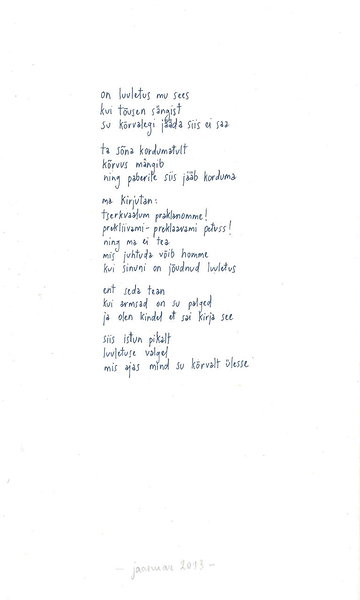 on luuletus mu sees
kui tõusen sängist
su kõrvalegi jääda siis ei saa
ta sõna kordumatult
kõrvus mängib
ning paberile siis jääb korduma
ma kirjutan:
tserkvaalum praklanomme!
prekliivami-preklaavami petuss!
ning ma ei tea
mis juhtuda võib homme
kui sinuni on jõudnud luuletus
ent seda tean
kui armsad on su palged
ja olen kindel et sai kirja see
siis istun pikalt
luuletuse valgel
mis ajas mind su kõrvalt ülesse
- jaanuar 2013 -